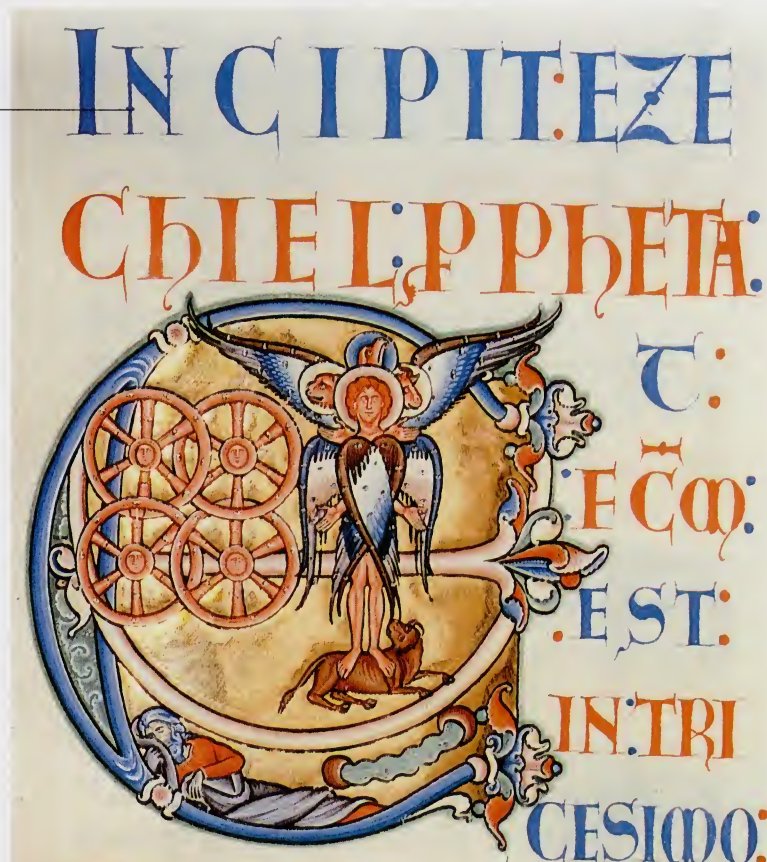 INCIPIT:EZE
ChIEL:PPhETA:
T:
:FC̄M:
.EST:
IN:TRI
CESIMO: